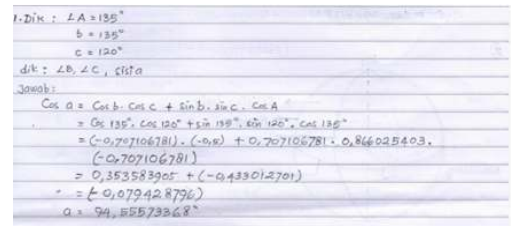 1. Dik : ∠A = 135°
b = 135°
c = 120°
dik : ∠B, ∠C, sisi a
Jawab :
Cos a = Cos b . Cos c + Sin b . Sin c . Cos A
= Cos 135° . Cos 120° + Sin 135° . Sin 120° . Cos 135°
= (-0,707106781) . (-0,5) + 0,707106781 . 0,866025403 .
(-0,707106781)
= 0,353583905 + (-0,433012701)
= (-0,079428796)
a = 94,55573368°